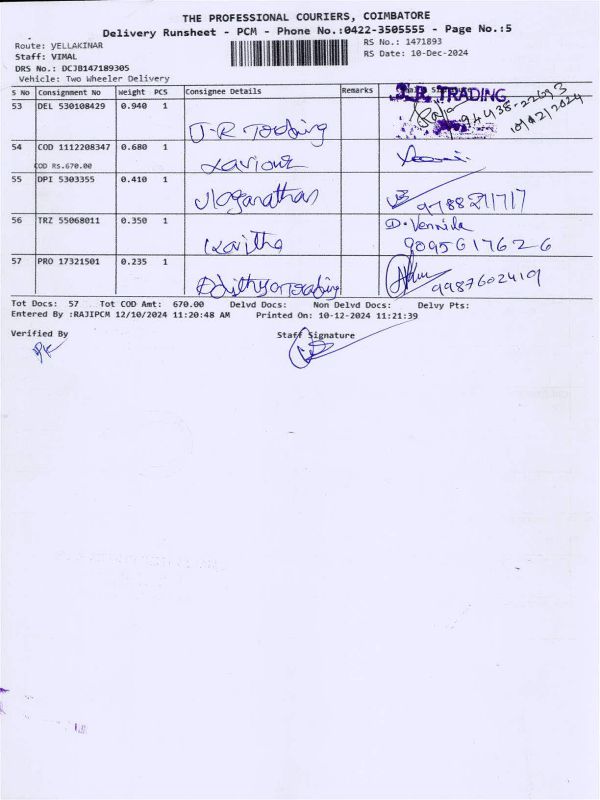 THE PROFESSIONAL COURIERS, COIMBATORE
Delivery Runsheet - PCM - Phone No.:0422-3505555 - Page No.:5
Route: YELLAKINAR RS No.: 1471893
Staff: VIMAL RS Date: 10-Dec-2024
DRS No.: DCJB147189305
Vehicle: Two Wheeler Delivery
S No Consignment No Weight PCS Consignee Details Remarks
53 DEL 530108429 0.940 1 J.R. TRADING
94438-22693
10/12/2024
J-R Trading
54 COD 1112208347 0.680 1
COD RS.670.00 Xaviour
55 DPI 5303355 0.410 1 Jloganathan 9788271717
56 TRZ 55068011 0.350 1 D. Vennila
Kavitha 9095617626
57 PRO 17321501 0.235 1
Adithya Trading 9987602419
Tot Docs: 57 Tot COD Amt: 670.00 Delvd Docs: Non Delvd Docs: Delvy Pts:
Entered By :RAJIPCM 12/10/2024 11:20:48 AM Printed On: 10-12-2024 11:21:39
Verified By Staff Signature